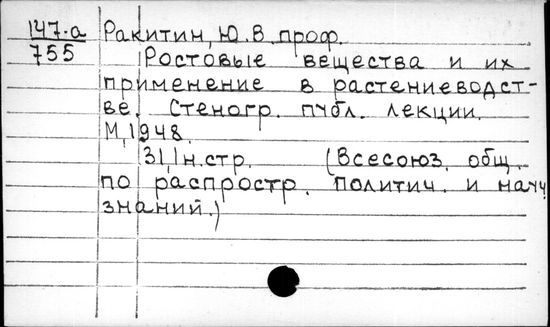 147-а Ракитин, Ю.В. проф.
755 Ростовые вещества и их
применение в растениеводст-
ве. Стеногр. публ. лекции.
М, 1948.
31,1н.стр. (Всесоюз. общ.
по распростр. политич. и науч.
знаний.)